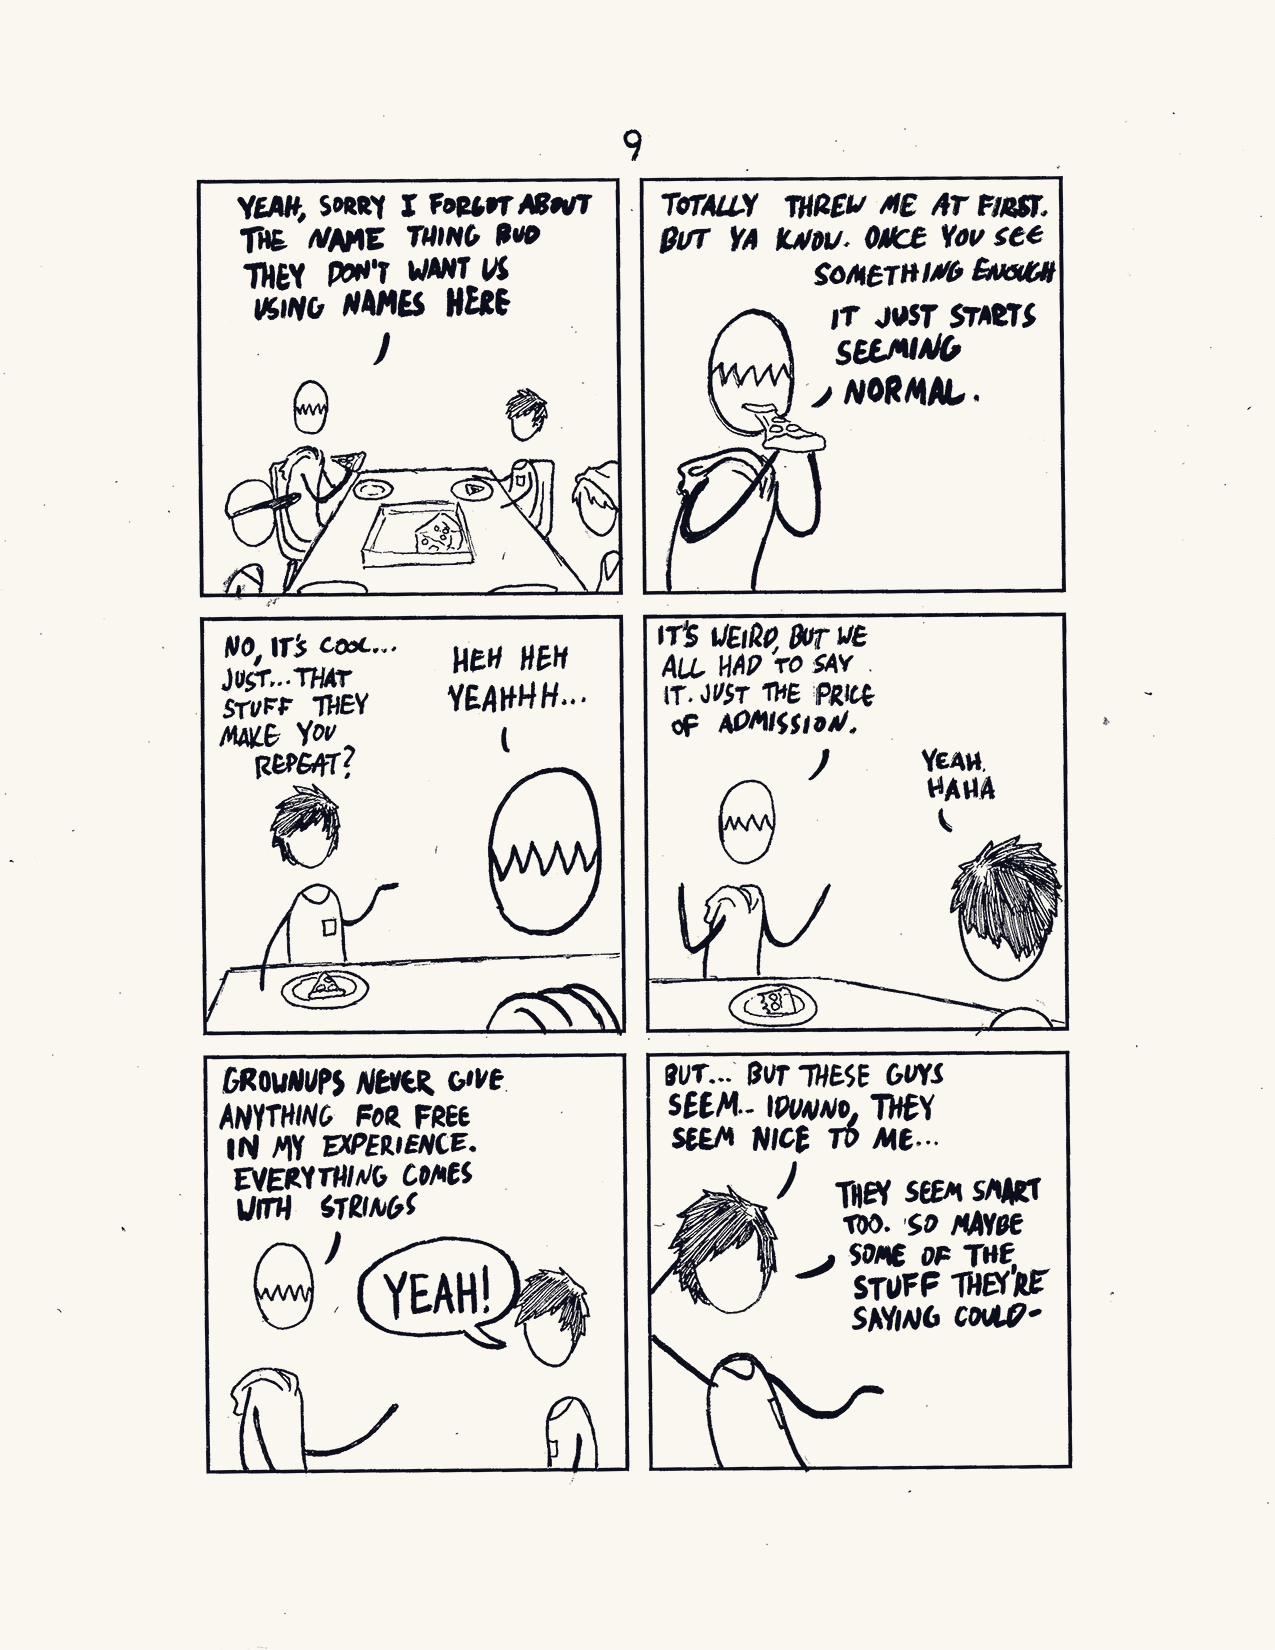 9
YEAH, SORRY I FORGOT ABOUT
THE NAME THING BUD
THEY DON'T WANT US
USING NAMES HERE
TOTALLY THREW ME AT FIRST.
BUT YA KNOW. ONCE YOU SEE
SOMETHING ENOUGH
IT JUST STARTS
SEEMING
NORMAL.
NO, IT'S COOL...
JUST... THAT
STUFF THEY
MAKE YOU
REPEAT?
HEH HEH
YEAHHH...
IT'S WEIRD, BUT WE
ALL HAD TO SAY
IT. JUST THE PRICE
OF ADMISSION.
YEAH.
HAHA
GROWNUPS NEVER GIVE
ANYTHING FOR FREE
IN MY EXPERIENCE.
EVERYTHING COMES
WITH STRINGS
YEAH!
BUT... BUT THESE GUYS
SEEM.. IDUNNO, THEY
SEEM NICE TO ME...
THEY SEEM SMART
TOO. SO MAYBE
SOME OF THE
STUFF THEY'RE
SAYING COULD-